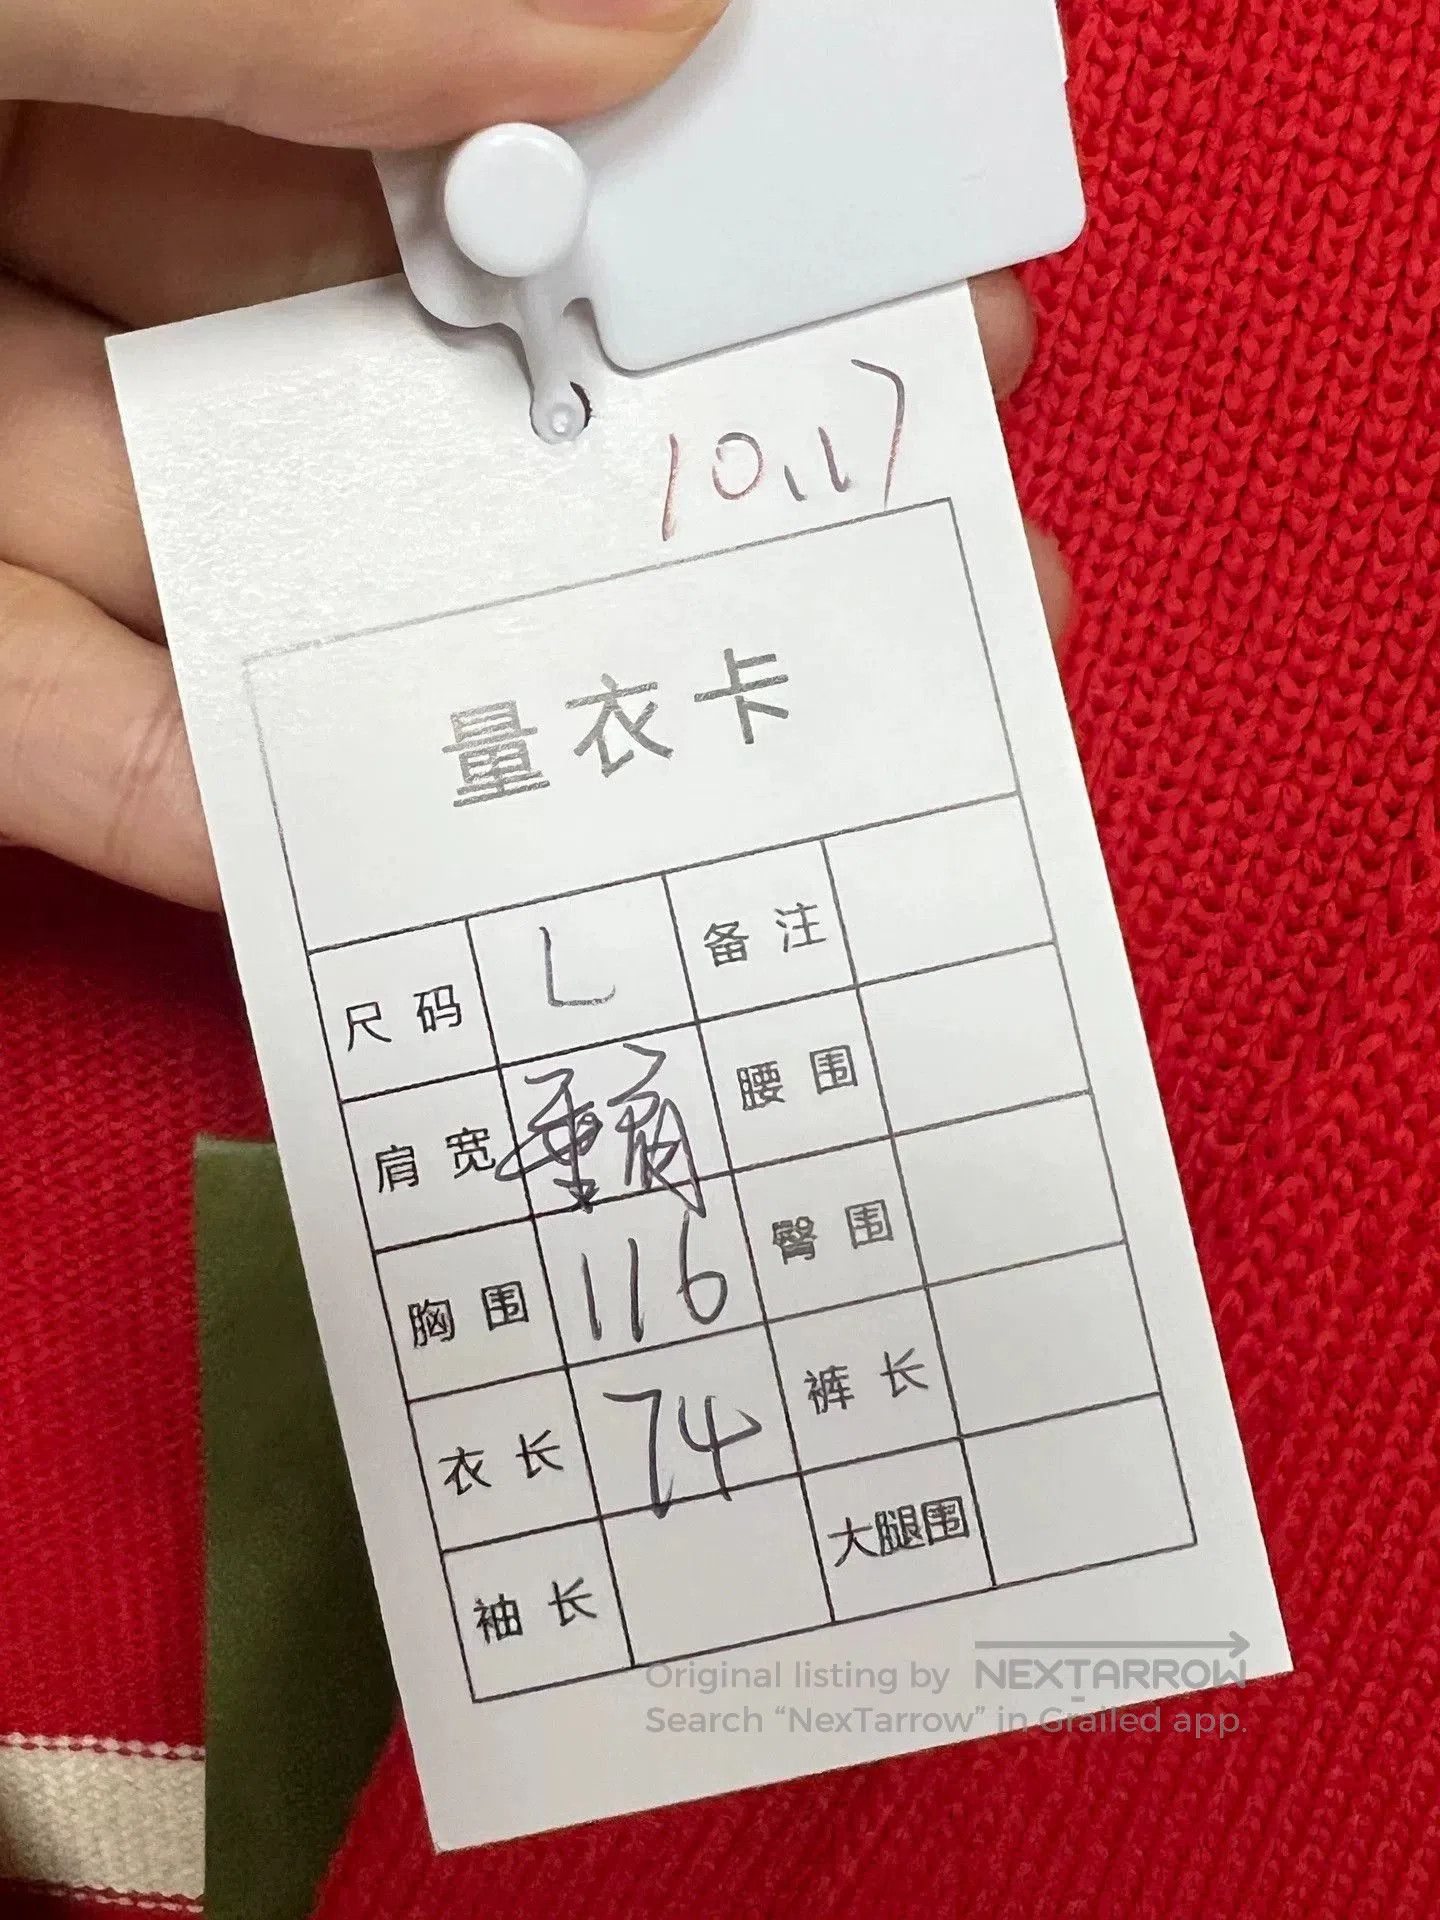 10.17
量衣卡
尺码 L 备注
肩宽 腰围
胸围 116 臀围
衣长 74 裤长
袖长 大腿围
Original listing by NEXTARROW
Search “NexTarrow” in Grailed app.